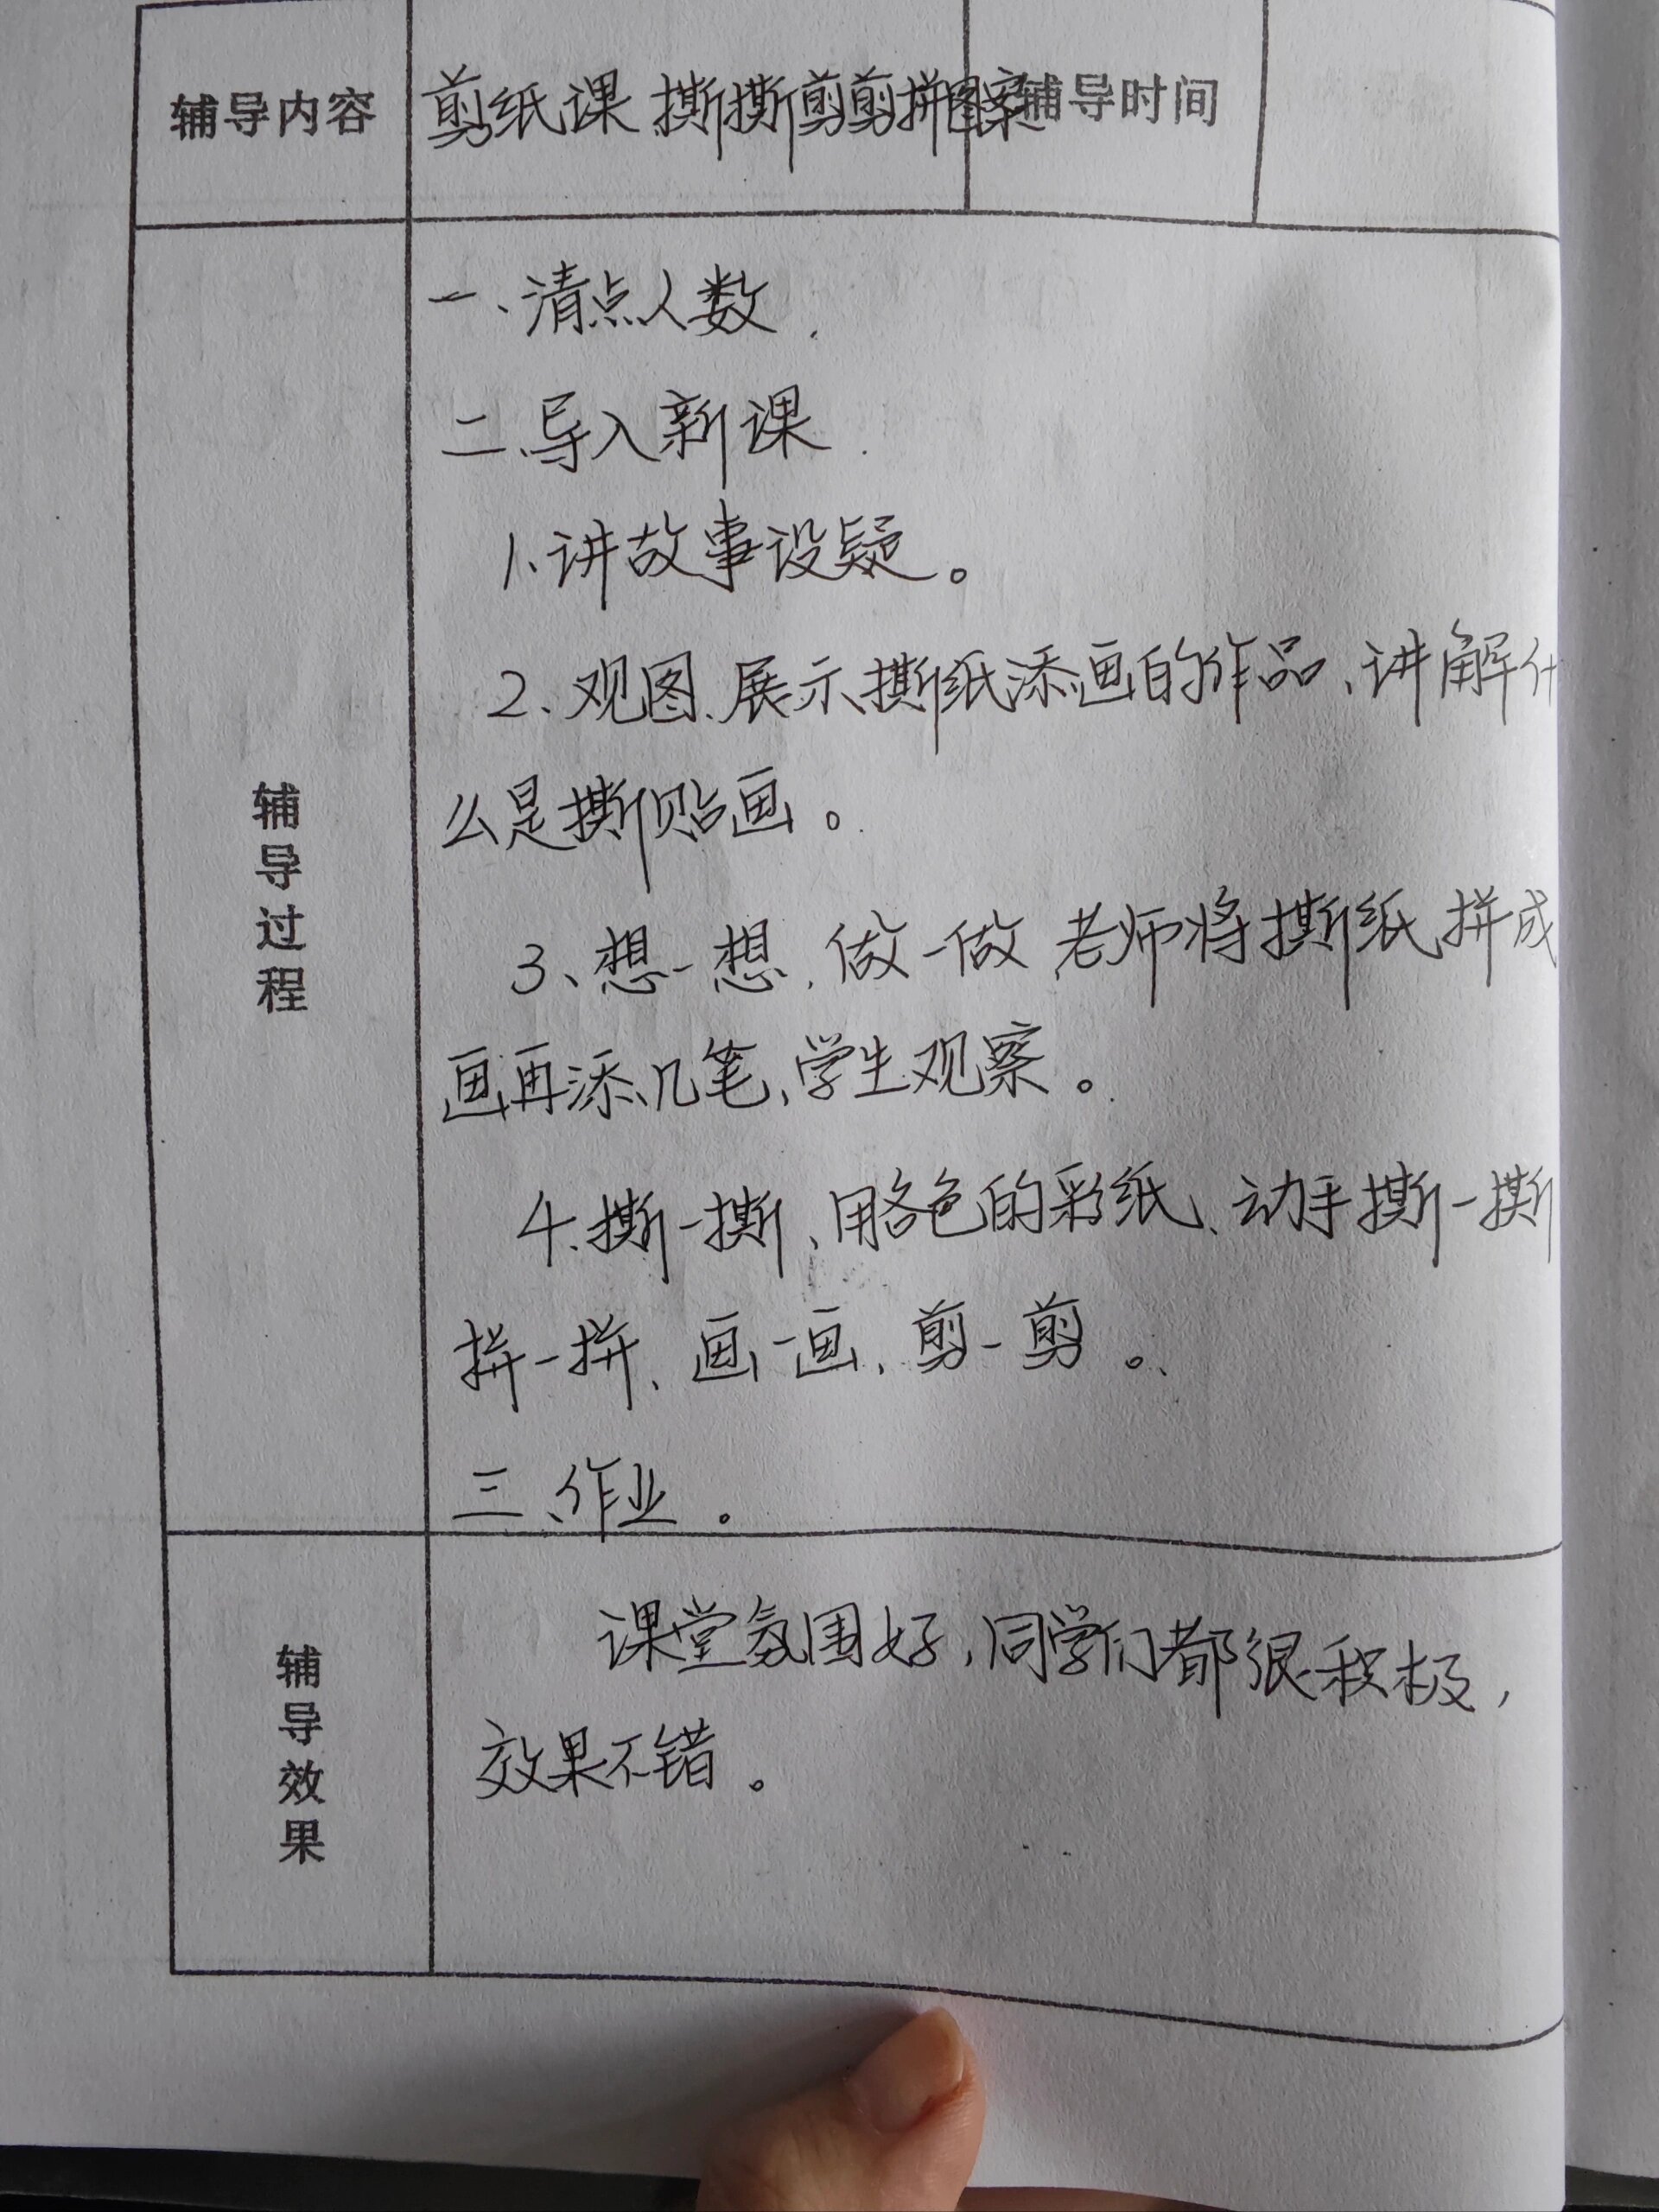 辅导内容 剪纸课 撕撕剪剪拼图案 辅导时间
一、清点人数.
二、导入新课.
1、讲故事设疑。
2、观图、展示撕纸添画的作品、讲解什
么是撕贴画。
3、想一想、做一做 老师将撕纸拼成
画再添几笔,学生观察。
4、撕一撕、用各色的彩纸、动手撕一撕
拼一拼、画一画、剪一剪。
三、作业。
辅导过程
课堂氛围好,同学们都很积极,
效果不错。
辅导效果